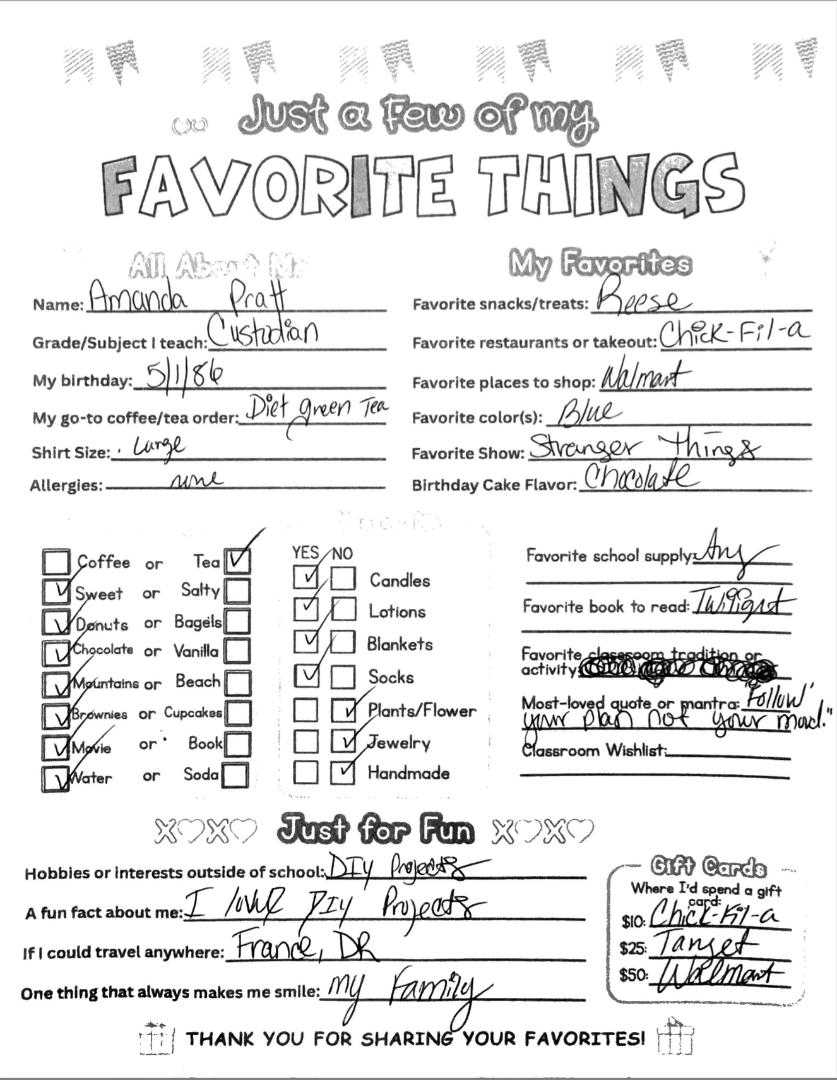 Just a Few of my
FAVORITE THINGS
All About Me
Name: Amanda Pratt
Grade/Subject I teach: Custodian
My birthday: 5/1/86
My go-to coffee/tea order: Diet green Tea
Shirt Size: Large
Allergies: none
My Favorites
Favorite snacks/treats: Reese
Favorite restaurants or takeout: Chick-Fil-a
Favorite places to shop: Walmart
Favorite color(s): Blue
Favorite Show: Stranger Things
Birthday Cake Flavor: Chocolate
Coffee or Tea
Sweet or Salty
Donuts or Bagels
Chocolate or Vanilla
Mountains or Beach
Brownies or Cupcakes
Movie or Book
Water or Soda
YES NO
Candles
Lotions
Blankets
Socks
Plants/Flower
Jewelry
Handmade
Favorite school supply: Any
Favorite book to read: Twilight
Favorite classroom tradition or
activity:
Most-loved quote or mantra: "Follow
your plan not your mood."
Classroom Wishlist:
XOXO Just for Fun XOXO
Hobbies or interests outside of school: DIY Projects
A fun fact about me: I love DIY Projects
If I could travel anywhere: France, DR
One thing that always makes me smile: my Family
Gift Cards
Where I'd spend a gift
card:
$10: Chick-Fil-a
$25: Target
$50: Walmart
THANK YOU FOR SHARING YOUR FAVORITES!